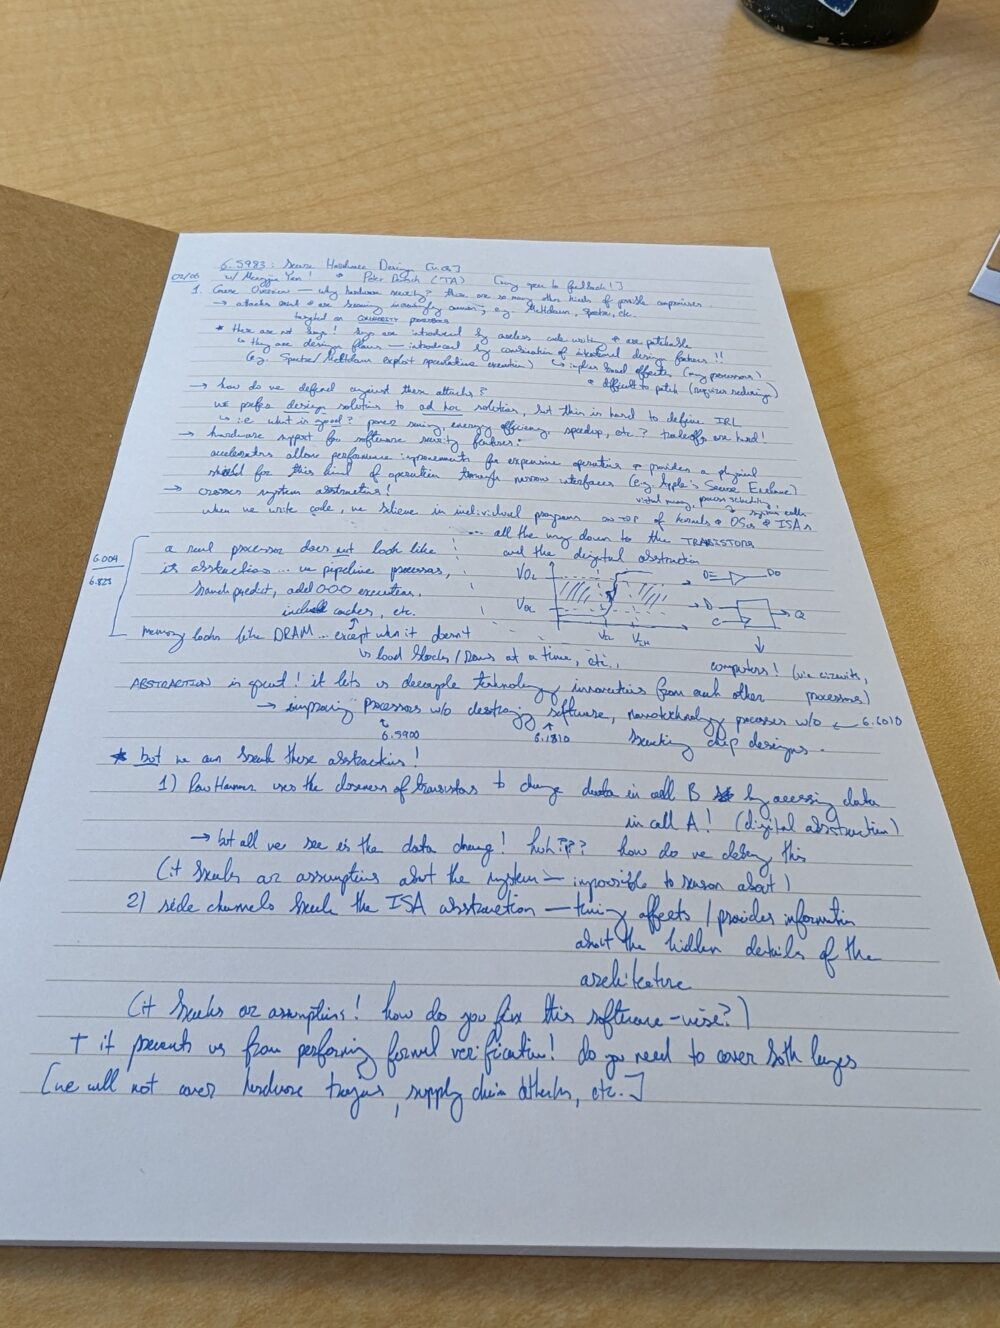 6.S983: Secure Hardware Design
02/06 w/ Mengjia Yan! & Peter (TA) [very open to feedback!]
1. Course Overview — why hardware security? there are so many other kinds of possible compromises
→ attacks exist & are becoming increasingly common, e.g. Meltdown, Spectre, etc.
targeted on COMMODITY processors
* these are not bugs! bugs are introduced by careless code writing & are patchable
↳ they are design flaws — introduced by combination of intentional design features!!
(e.g. Spectre/Meltdown exploit speculative execution) ↳ implies broad effects (many processors)
& difficult to patch (requires redesign)
→ how do we defend against these attacks?
we prefer design solutions to ad hoc solutions, but this is hard to define IRL
↳ i.e. what is good? power saving, energy efficiency, speedup, etc.? tradeoffs are hard!
→ hardware support for software security features:
accelerators allow performance improvements for expensive operations & provides a physical
shield for this kind of operation through narrow interfaces (e.g. Apple's Secure Enclave)
→ crosses system abstractions!
virtual memory, process scheduling, system calls
when we write code, we believe in individual programs on top of kernels & OSes & ISAs
... all the way down to the TRANSISTORS
and the digital abstraction
6.004
6.823
a real processor does not look like
its abstraction... we pipeline processors,
branch predict, add OOO execution,
include caches, etc.
memory looks like DRAM... except when it doesn't
↳ load blocks/rows at a time, etc.,
VOL
D Q
C
computers! (via circuits, processors)
ABSTRACTION is great! it lets us decouple technology innovations from each other
→ improving processors w/o destroying software, nanotechnology processes w/o ← 6.6010
6.5900 6.1810 breaking chip designs.
* but we can break these abstractions!
1) RowHammer uses the closeness of transistors to change data in cell B by accessing data
in cell A! (digital abstraction)
→ but all we see is the data change! huh??? how do we debug this
(it breaks our assumptions about the system — impossible to reason about)
2) side channels break the ISA abstraction — timing affects/provides information
about the hidden details of the
architecture
(it breaks our assumptions! how do you fix this software-wise?)
+ it prevents us from performing formal verification! do you need to cover both layers
[we will not cover hardware trojans, supply chain attacks, etc.]